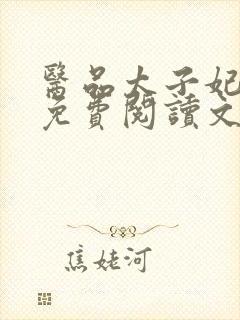 醫品太子妃
免費閱讀文
焦姥河